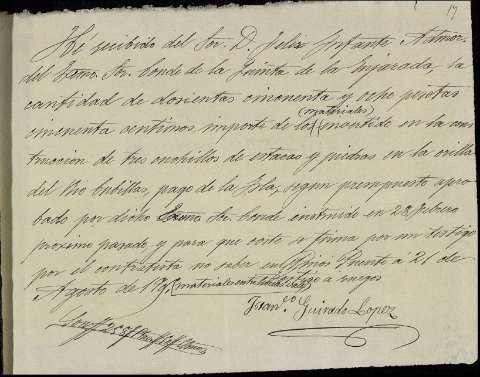 17
He recibido del Sor. D. Felix Infante Admor.
del Exmo. Sr. Conde de la Quinta de la Enjarada la
cantidad de dosientas cincuenta y ocho pesetas
cincuenta centimos importe de los (materiales) invertido en la cons
truccion de tres cuchillos de estacas y piedras en la orilla
del Rio Cubillas, pago de la Isla, segun presupuesto apro
bado por dicho Exmo. Sr. Conde instruido en 28 febrero
proximo pasado, y para que conste se firma por un testigo
por el contratista no saber en Pinos Puente a 21 de
Agosto de (materiales entre lineas vale)
Testigo a ruegos
Franco. Guirado Lopez